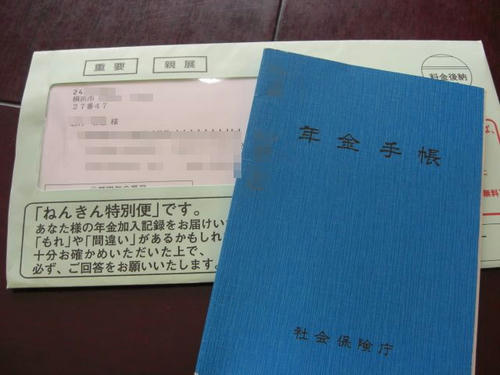 重要
親展
料金後納
24
横浜市
27番47
様
「ねんきん特別便」です。
あなた様の年金加入記録をお届けい
「もれ」や「間違い」があるかもしれ
十分お確かめいただいた上で、
必ず、ご回答をお願いいたします。
年金手帳
社会保険庁